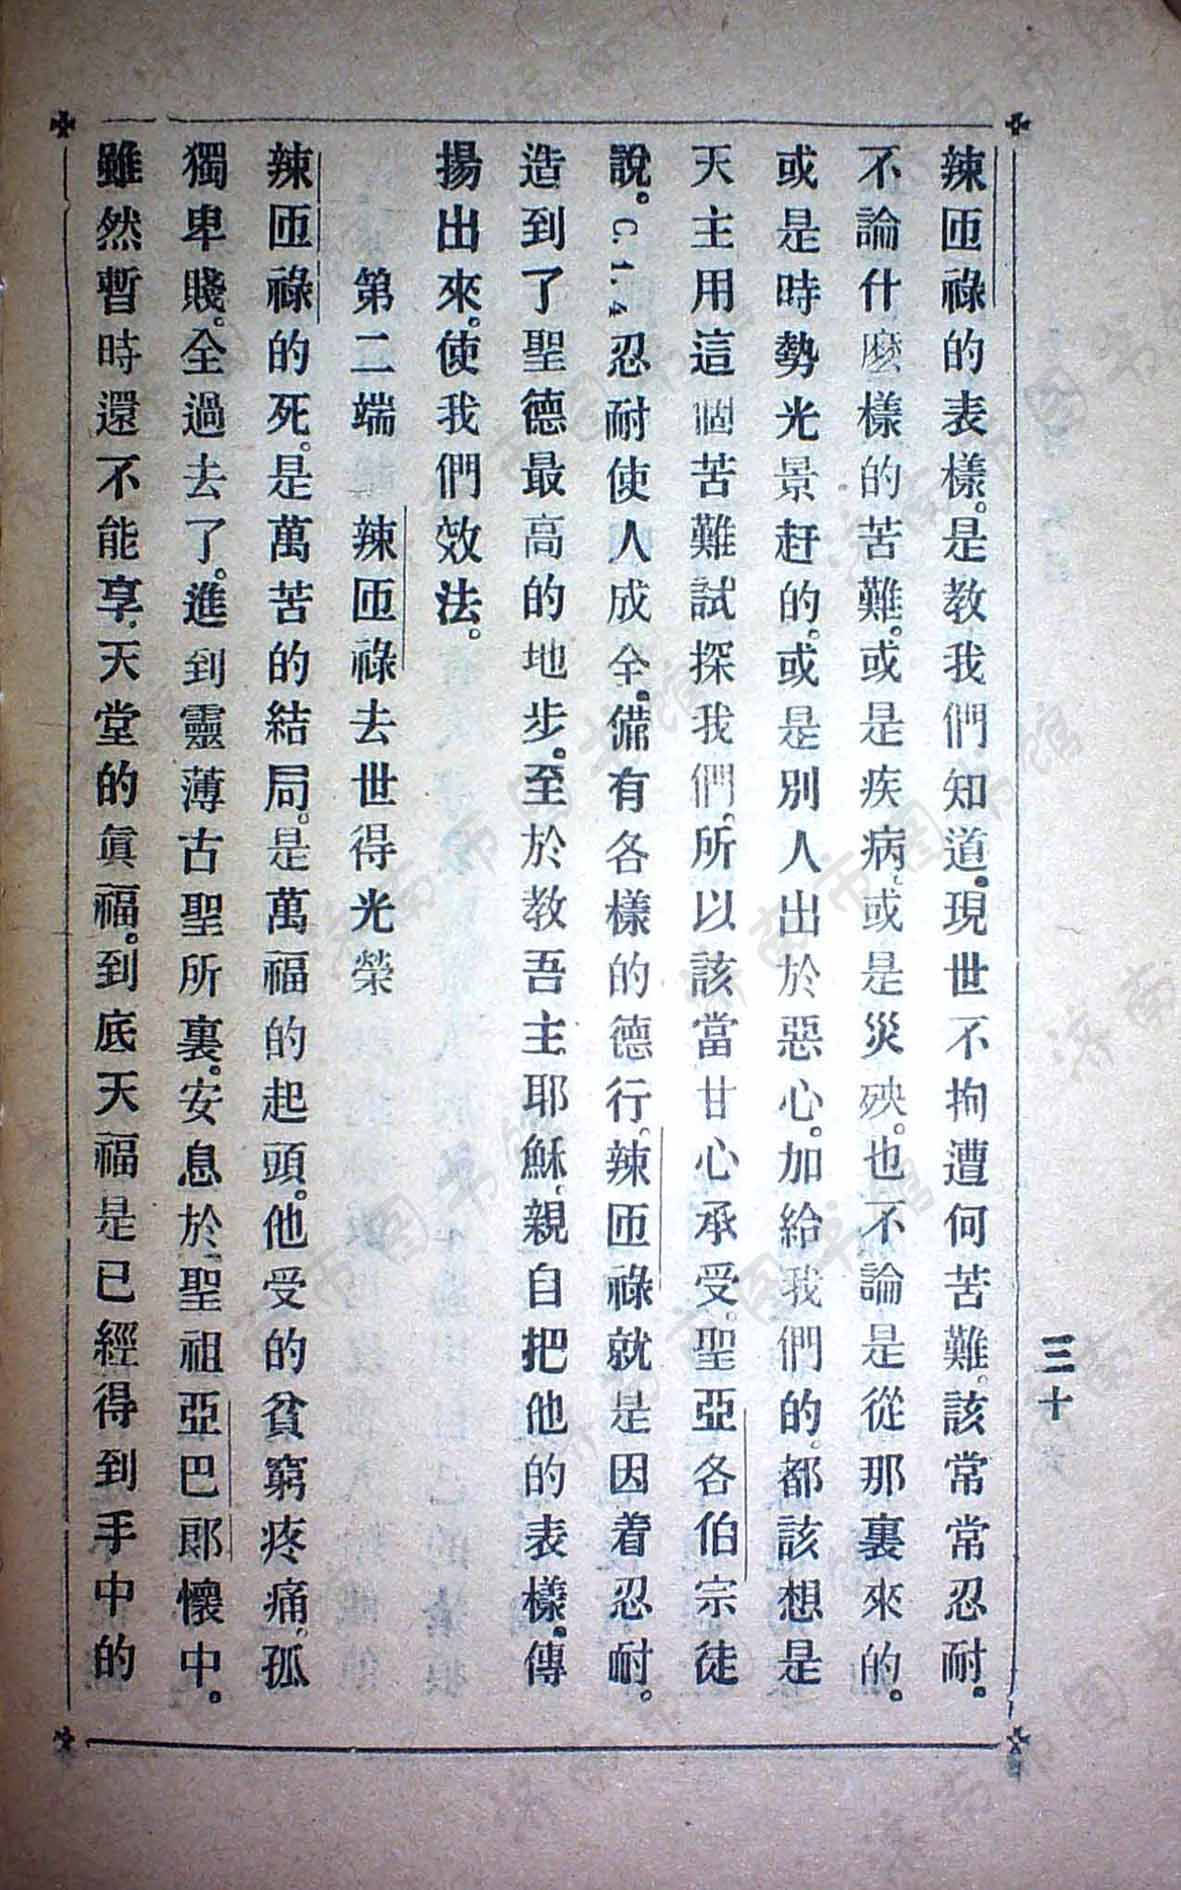 三十
辣匝祿的表樣。是教我們知道。現世不拘遭何苦難。該常常忍耐。
不論什麼樣的苦難。或是疾病。或是災殃。也不論是從那裏來的。
或是時勢光景赶的。或是別人出於惡心。加給我們的。都該想是
天主用這個苦難試探我們。所以該當甘心承受。聖亞各伯宗徒
說。C.1.4忍耐使人成全。備有各樣的德行。辣匝祿就是因着忍耐。
造到了聖德最高的地步。至於教吾主耶穌。親自把他的表樣。傳
揚出來。使我們效法。
第二端 辣匝祿去世得光榮
辣匝祿的死。是萬苦的結局。是萬福的起頭。他受的貧窮疼痛。孤
獨卑賤。全過去了。進到靈薄古聖所裏。安息於聖祖亞巴郎懷中。
雖然暫時還不能享天堂的眞福。到底天福是已經得到手中的
濟南市图书馆